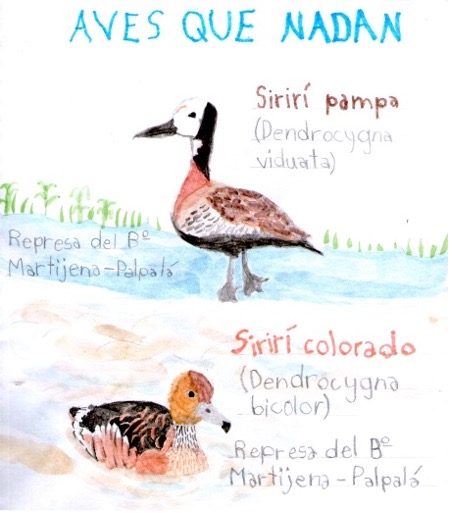 AVES QUE NADAN
Sirirí pampa
(Dendrocygna
viduata)
Represa del Bº
Martijena-Palpalá
Sirirí colorado
(Dendrocygna
bicolor)
Represa del Bº
Martijena-Palpalá